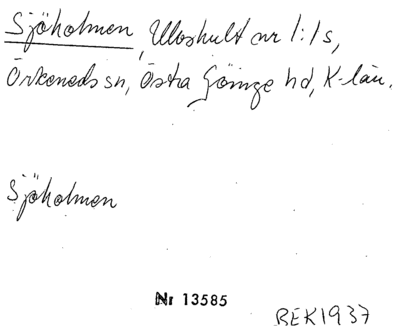 Sjöholmen, Ulvshult nr 1:1 s,
Örkeneds sn, Östra Göinge hd, K-län.
Sjöholmen
Nr 13585
BEK1937